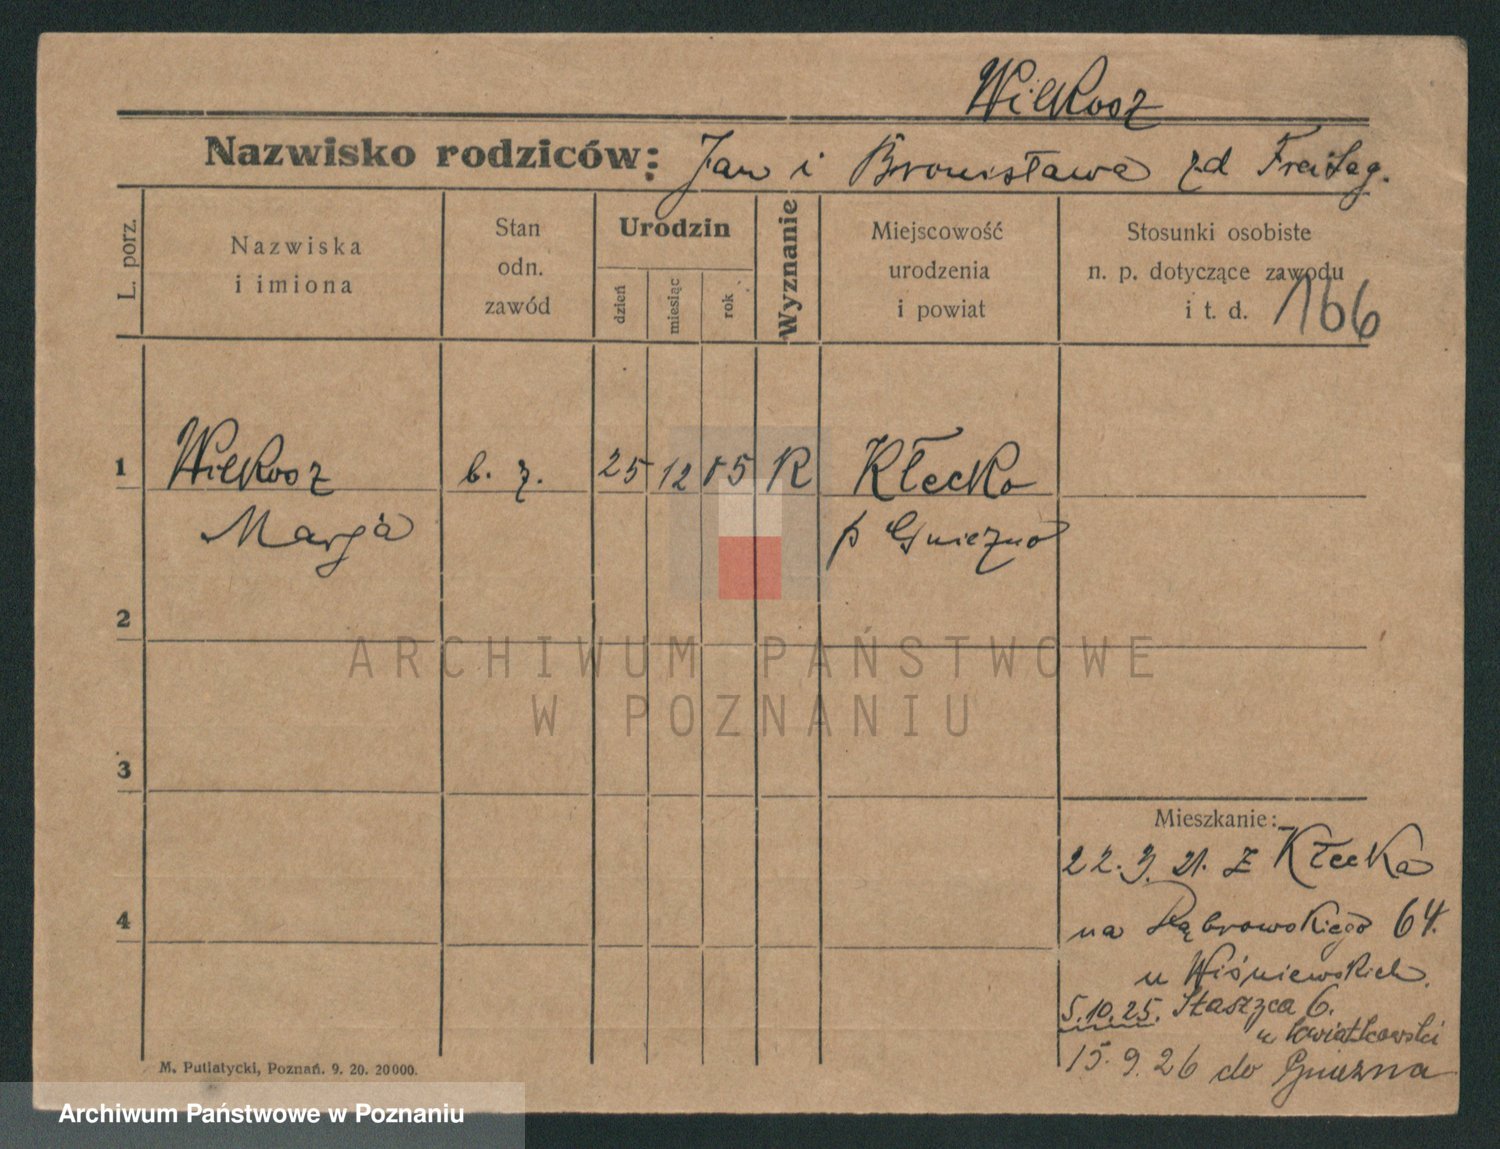 Wilkosz
Nazwisko rodziców: Jan i Bronisława zd Freitag.
L. porz.
Nazwiska
i imiona
Stan
odn.
zawód
Urodzin
dzień
miesiąc
rok
Wyznanie
Miejscowość
urodzenia
i powiat
Stosunki osobiste
n. p. dotyczące zawodu
i t. d. 166
1 Wilkosz b. z. 25 12 05 R Kłecko
Marja p Gniezno
2
3
4
Mieszkanie:
22.3.21. z Kłecka
na Dąbrowskiego 64.
u Wiśniewskich.
5.10.25. Staszyca 6.
u Kwiatkowski
15.9.26 do Gniezna
M. Putiatycki, Poznań. 9. 20. 20000.
ARCHIWUM PAŃSTWOWE
W POZNANIU
Archiwum Państwowe w Poznaniu